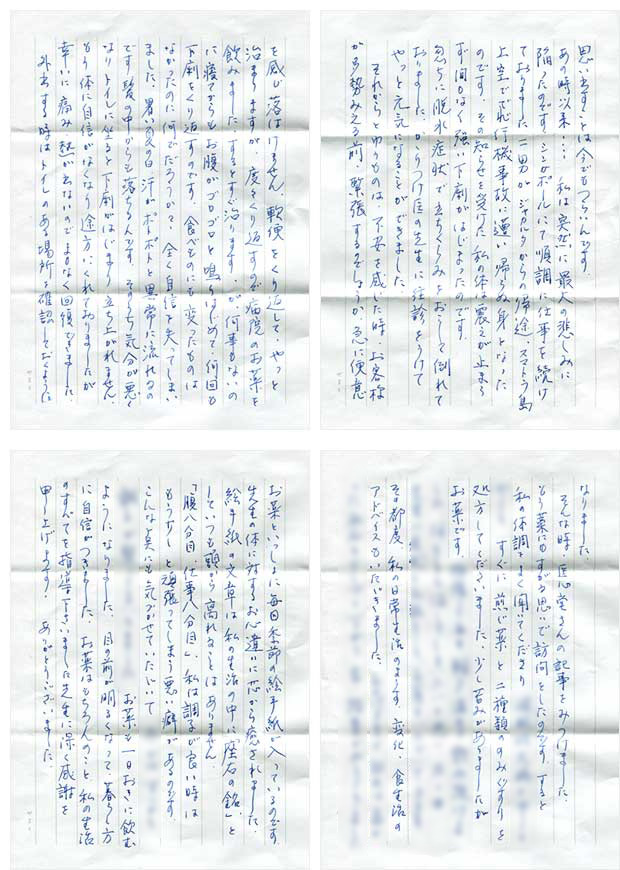 思い出すことは今でもつらいんです。
あの時以来… 私は突然に最大の悲しみに
陥ったのです。シンガポールにて順調に仕事を続け
ておりました二男がジャカルタからの帰途スマトラ島
上空でで飛行機事故に遭い帰らぬ身となった
のです。その知らせを受けた私の体は震えが止まら
ず間もなく強い下痢がはじまったのです。
急ちに脱水症状で立ちくらみをおこして倒れて
おりました。かかりつけ医の先生に往診をうけて
やっと元気になることができました。
それからとゆうものは、不安を感じた時、お客様
が多勢みえる前、緊張するでしょうか急に便意
を感じ落ちつけません。軟便をくり返して、やっと
治まりますが、度々くり返すので病院のお薬を
飲みました。するとすぐ治ります。が何事もないの
に寝てからもお腹がゴロゴロと鳴りはじめて何回も
下痢をくり返すのです。食べものにも変ったものは
なかったのに何でだろうかて、全く自信を失ってしまい
ました。暑い夏の日、汗がポトポトと異常に流れるの
です。髪の中からも落ちるんです。そのうち気分が悪く
なりトイレに坐ると下痢がはじまり立ち上がれません。
もう体に自信がなくなり途方にくれておりましたが
幸いに痛み、熱が出ないのでまもなく回復できました。
外出する時はトイレのある場所を確認しておくように
なりました。
そんな時、医心堂さんの記事をみつけました。
もう藁にもすがる思いで訪問としたのです。すると
私の体調をよく聞いてくださり
すぐに煎じ薬と二種類ののみぐすりを
処方してくださいました。少し苦みがありますが
お薬です。
その都度、私の日常生活のようす、変化、食生活の
アドバイスもいただきました。
お薬といっしょに毎回季節の絵手紙が入っているのです。
先生の体に対するお心遣いに心から癒されました。
絵手紙の文章は私の生活の中に「座右の銘」と
していつも頭から離れることはありません
「腹八分目、仕事八分目」、私は調子が良い時は
もう少しと頑張ってしまう悪い癖があるのです。
こんな莫にも気づかせていただいて
お薬も一日おきに飲む
ようになりました。目の前が明るくなって暮らし方
に自信がつきました。お薬はもちろんのこと、私の生活
のすべてを指導下さいました先生に深く感謝を
申し上げます。ありがとうございました。